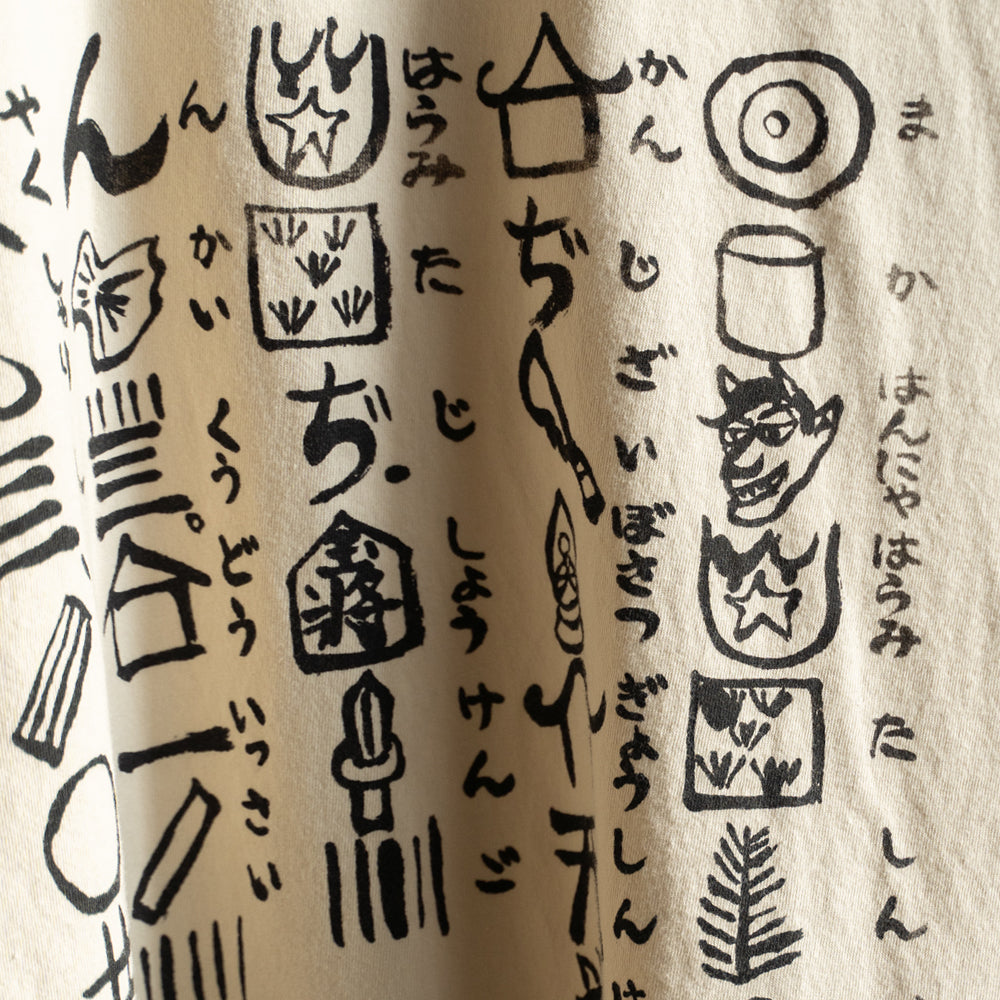 まかはんにゃはうみたしん
かんじざいぼさつぎょうしん
ぢ
はうみたじしょうけんご
ぢ
玉将
んかいくうどういっさい
ん
やく